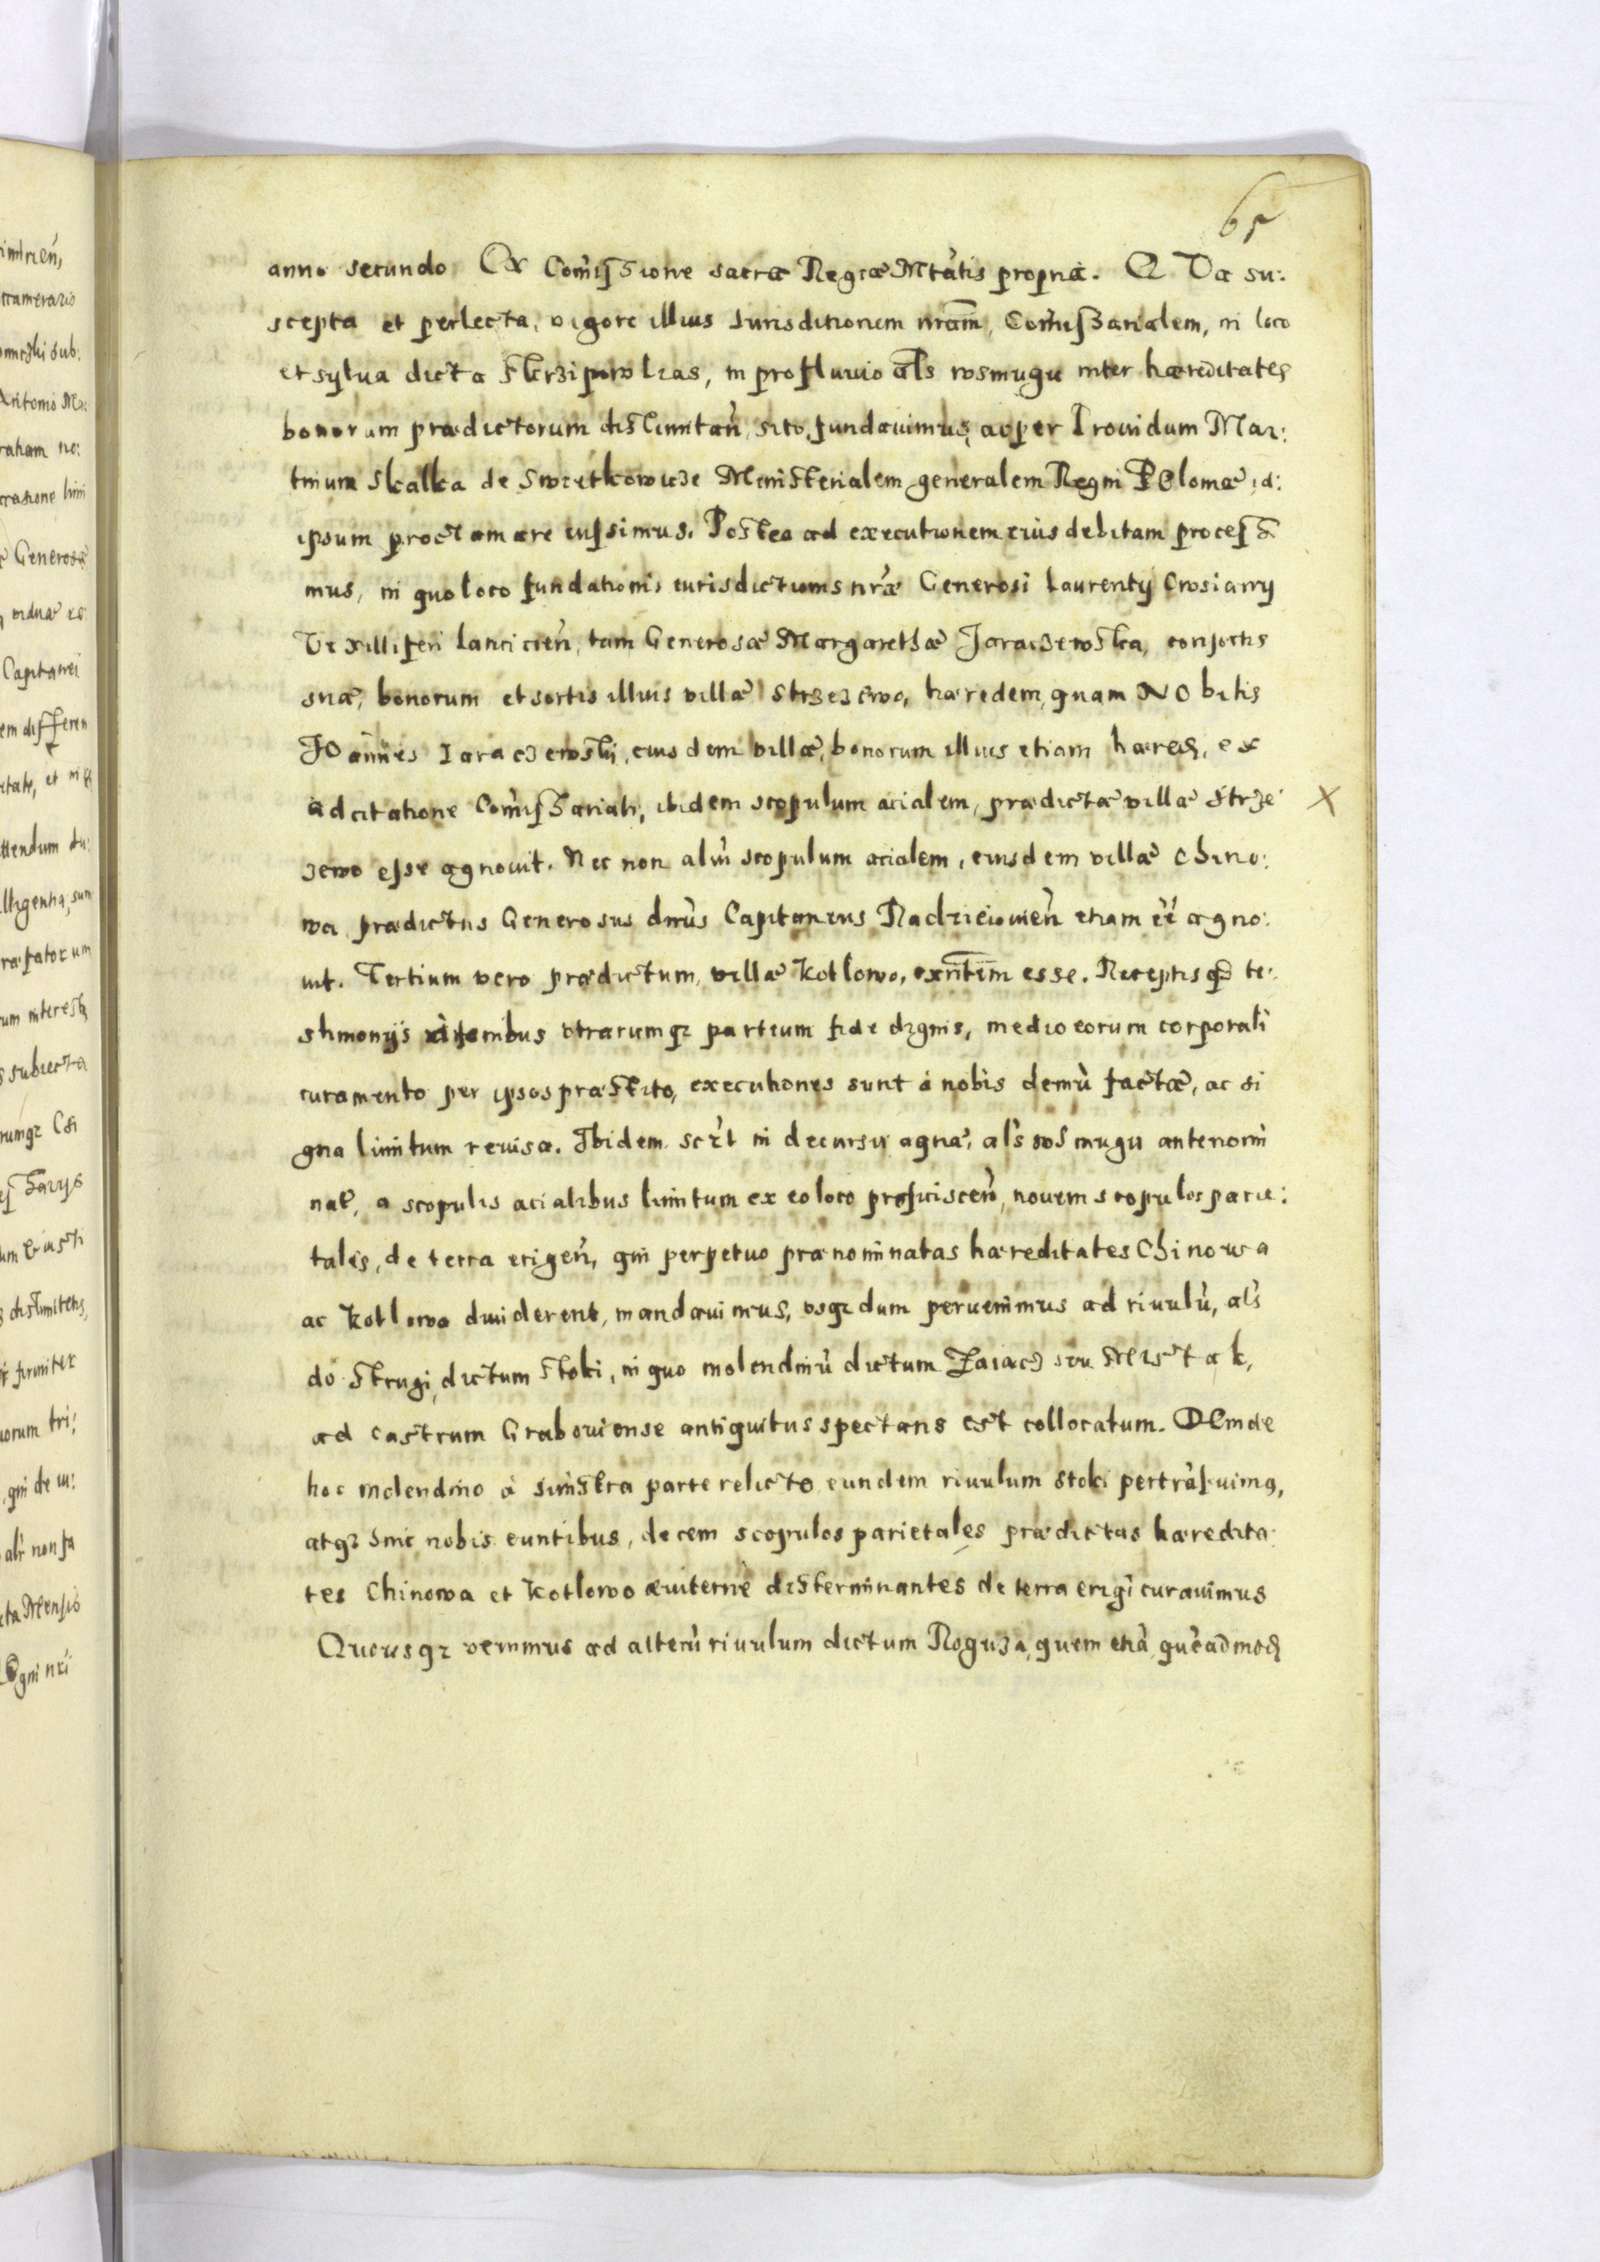 65
anno secundo Ex Com̃issione sacræ Regiæ Mtãtis propriæ. Q Va su:
scepta et perlecta, vigore illius Iurisditionem nram̃, Com̃issarialem, in loco
et sylua dicta, in profluuio al̃s wsmugu inter hæreditates
bonorum prædictorum dislimitañ, sito, fundauimus, ac per Prouidum Mar:
tinum Skalka de Swietkowicze Ministerialem generalem Regni POloniæ id:
ipsum proclamare iussimus. Postea ad executionem eius debitam processi
mus, in quo loco fundationis iurisdictionis nr̃æ Generosi Laurentij
Vexilliferi Lancicieñ, tam Generosæ Margarethæ Jaraczewska, consortis
suæ, bonorum et sortis illius villæ Strzezewo, hæredem, quam NObilis
JOannes Iaraczewskj, eius dem villæ, bonorum illius etiam hæres, ex
adcitatione Com̃issariali, ibidem scopulum acialem, prædictæ villæ Strze
X
zewo esse agnouit. Nec non aliũ scopulum acialem, eiusdem villæ Chino:
wa prædictus Generosus dnũs Capitaneus etiam eẽ agno:
uit. Tertium vero prædictum, villæ Kotlowo, exñtem esse. Receptis te:
stimonijs vtrarumq3 partium fide dignis, medio eorum corporali
iuramento per ipsos præstito, executiones sunt à nobis demũ factæ, ac si
gna limitum reuisa. Ibidem scĩlt in decursu aquæ, al̃s wsmugu antenomi
nat̃, a scopulis acialibus limitum ex eo loco proficisceñ, nouem scopulos parie:
tales, de terra erigeñ, qui perpetuo prænominatas hæreditates Chinowa
ac Kotlowo diuiderent, mandauimus, vsq3 dum peruenimus ad riuulũ, al̃s
do Strugi, dictum Stoki, in quo molendinũ dictum Zaiacz seu Mistak,
ad castrum Grabouiense antiquitus spectans est collocatum. DEinde
hoc molendino à sinistra parte relicto eundem riuulum Stoki pertrãsiuimus,
atq3 sinc nobis euntibus, decem scopulos parietales prædictas hæredita
tes Chinowa et Kotlowo æuiterne disterminantes de terra erigi curauimus
Quousq3 venimus ad alterũ riuulum dictum Roguza, quem etiã, quẽadmod